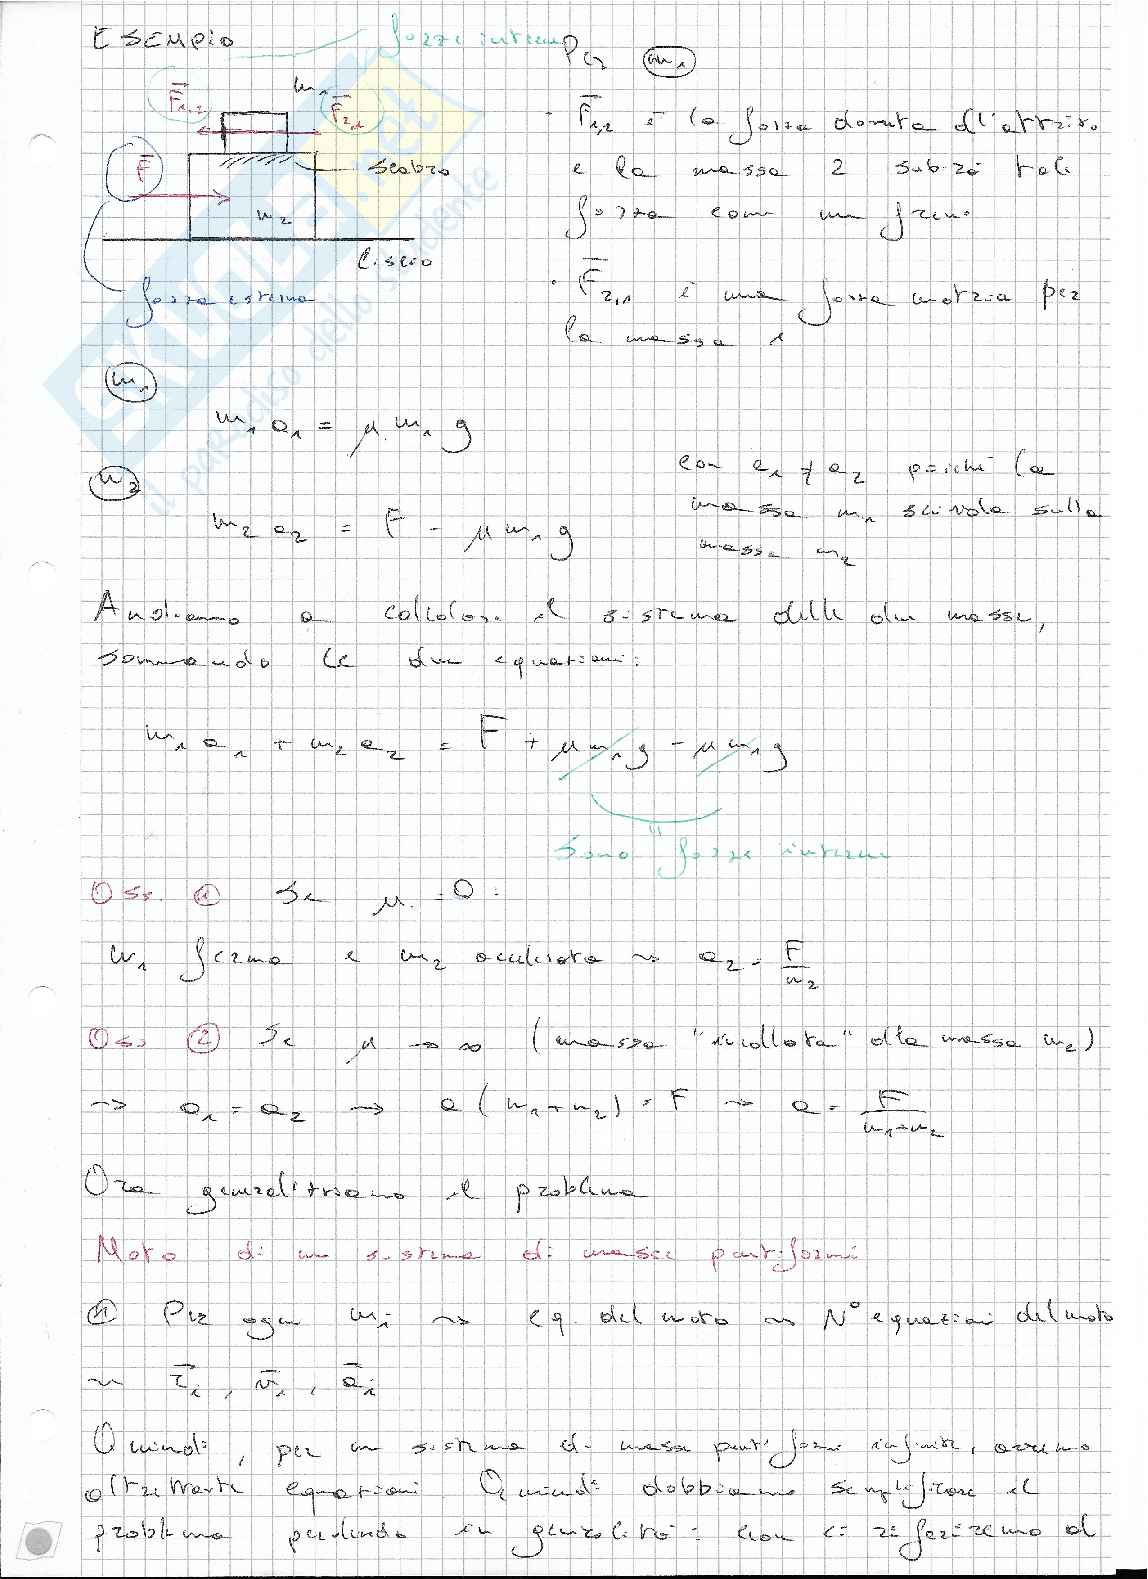 ESEMPIO
forze interne
Per m₁
m₁
F₁,₂
F₂,₁
F
scabro
m₂
liscio
forza esterna
· F₁,₂ è la forza dovuta all'attrito
e la massa 2 subirà tale
forza come un freno
· F₂,₁ è una forza motrice per
la massa 1
m₁
m₁ a₁ = μ m₁ g
m₂
m₂ a₂ = F - μ m₁ g
con a₁ ≠ a₂ poiché la
massa m₁ scivola sulla
massa m₂
Andiamo a calcolare il sistema delle due masse,
sommando le due equazioni:
m₁ a₁ + m₂ a₂ = F + μ m₁ g - μ m₁ g
Sono forze interne
Oss. 1 Se μ = 0:
m₁ ferma e m₂ accelerata ~> a₂ = F/m₂
Oss 2 Se μ → ∞ (massa "incollata" alla massa m₂)
~> a₁ = a₂ → a (m₁ + m₂) = F ~> a = F/(m₁+m₂)
Ora generalizziamo il problema
Moto di un sistema di masse puntiformi
1 Per ogni mᵢ ~> eq. del moto ~> N° equazioni del moto
~> rᵢ, vᵢ, aᵢ
Quindi, per un sistema di masse puntiformi infinite, avremo
altrettante equazioni Quindi dobbiamo semplificare il
problema perdendo in generalità: non ci riferiremo al
SKUOLA.net
il paradiso dello studente